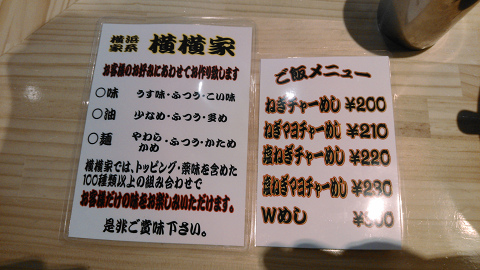 横浜家系 横横家
お客様のお好みにあわせてお作り致します
○味 うす味・ふつう・こい味
○油 少なめ・ふつう・多め
○麺 やわら・ふつう・かため
かめ
横横家では、トッピング・薬味を含めた
100種類以上の組み合わせで
お客様だけの味をお楽しみいただけます。
是非ご賞味下さい。
ご飯メニュー
ねぎチャーめし ¥200
ねぎマヨチャーめし ¥210
塩ねぎチャーめし ¥220
塩ねぎマヨチャーめし ¥230
Wめし